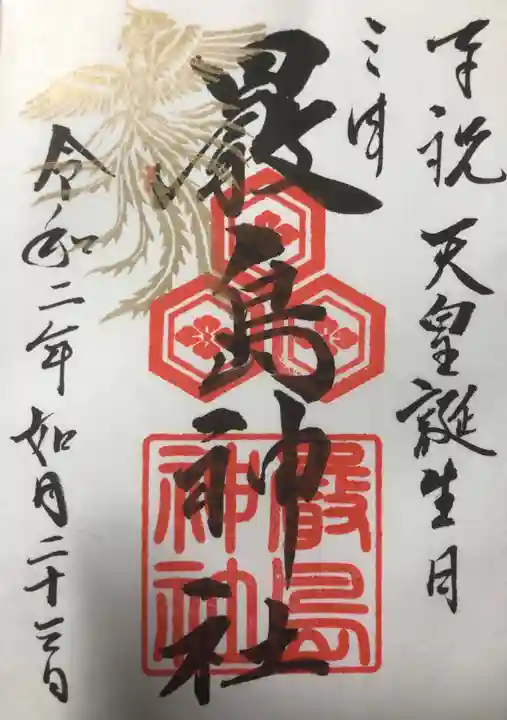 奉祝 天皇誕生日
三津
嚴島神社
令和二年 如月二十三日
嚴島
神社